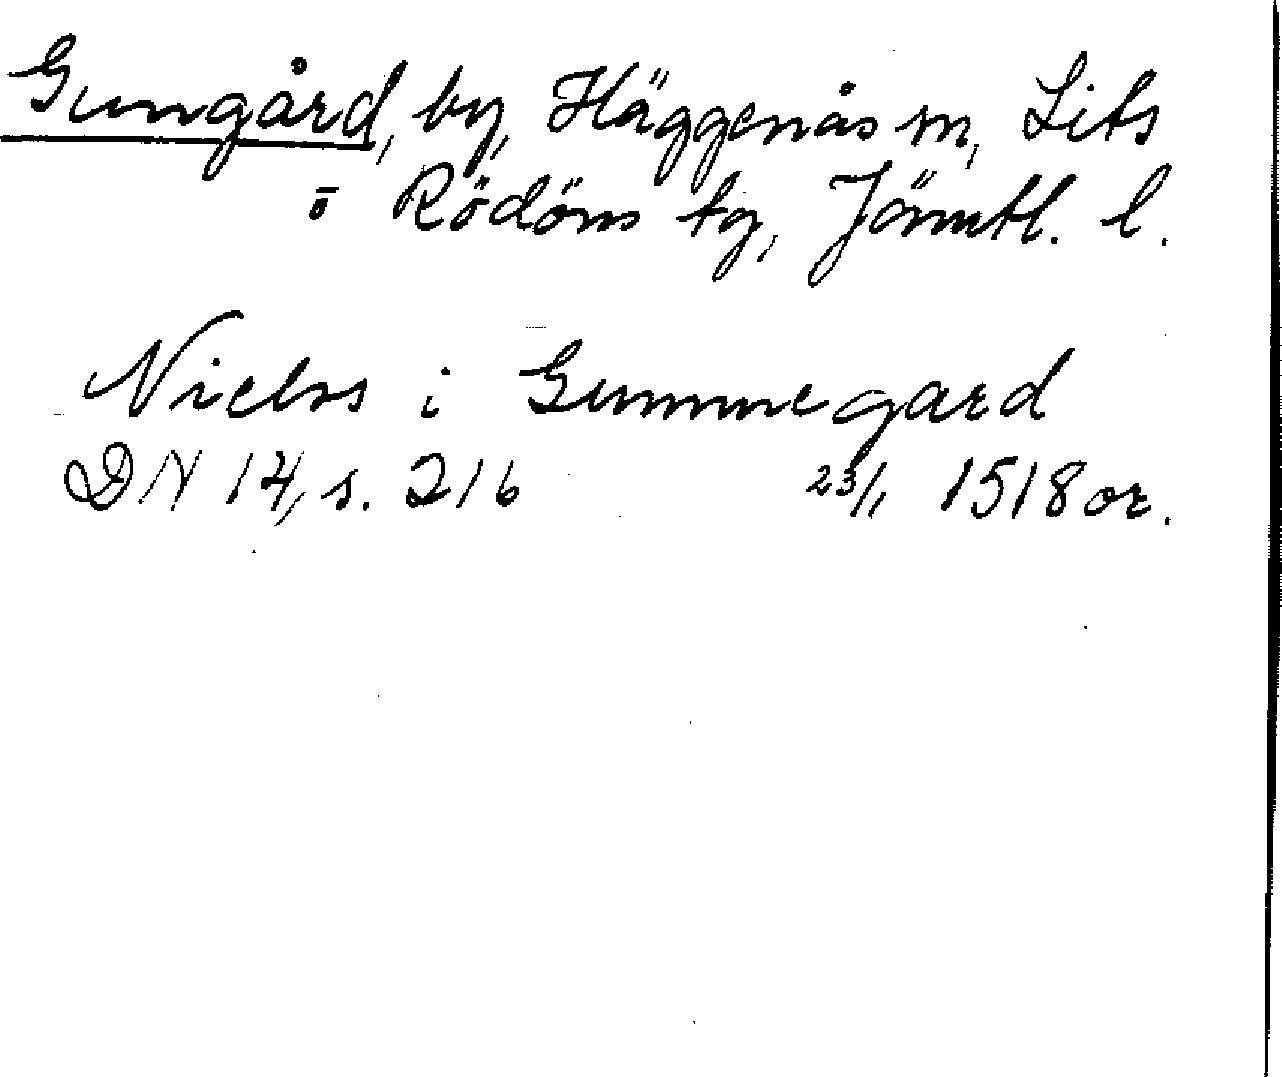 Gungård, by, Häggenås sn, Lits
o Rödöns tg, Jämtl. l.
Nielss i Gunnegard
DN 14, s. 216 23/1 1518 or.